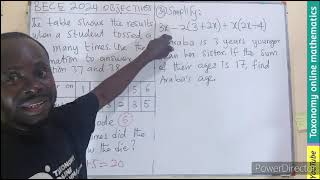 BECE 2024 OBJECTIVES
The table shows the results
when a student tossed a
many times. Use the
to answer
37 and 38.
5 6
Mode (6)
times did the
the die?
= 20
(39) Simplify:
3x - 2(3+2x) + x(2x-4)
Araba is 3 years younger
than her sister. If the sum
of their ages is 17, find
Araba's age.
Taxonomy online mathematics
YouTube
TAXONOMY
ONLINE
PowerDirector